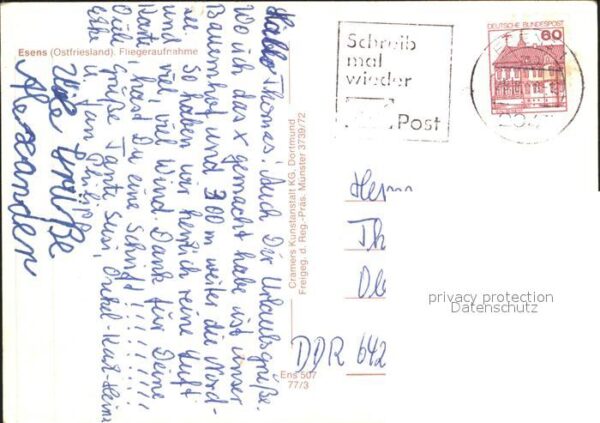 Esens (Ostfriesland). Fliegeraufnahme
Hallo Thomas! Auch Dir Urlaubsgrüße.
Wo ich das x gemacht habe ist unser
Bauernhof und 300 m weiter die Nord-
see. So haben wir herrlich reine Luft
und viel, viel Wind. Dank für Deine
Karte, hast Du eine Schrift!!!!!!!!!
Grüße Tante Susi, Onkel Karl-Heinz
u. Jan Philipp
Viele Grüße
Alexander
Cramers Kunstanstalt KG, Dortmund
Freigeg. d. Reg.-Präs. Münster 3739/72
Ens 507
77/3
Schreib
mal
wieder
Post
DEUTSCHE BUNDESPOST
60
Herrn
Th
Ob
DDR 642
privacy protection
Datenschutz